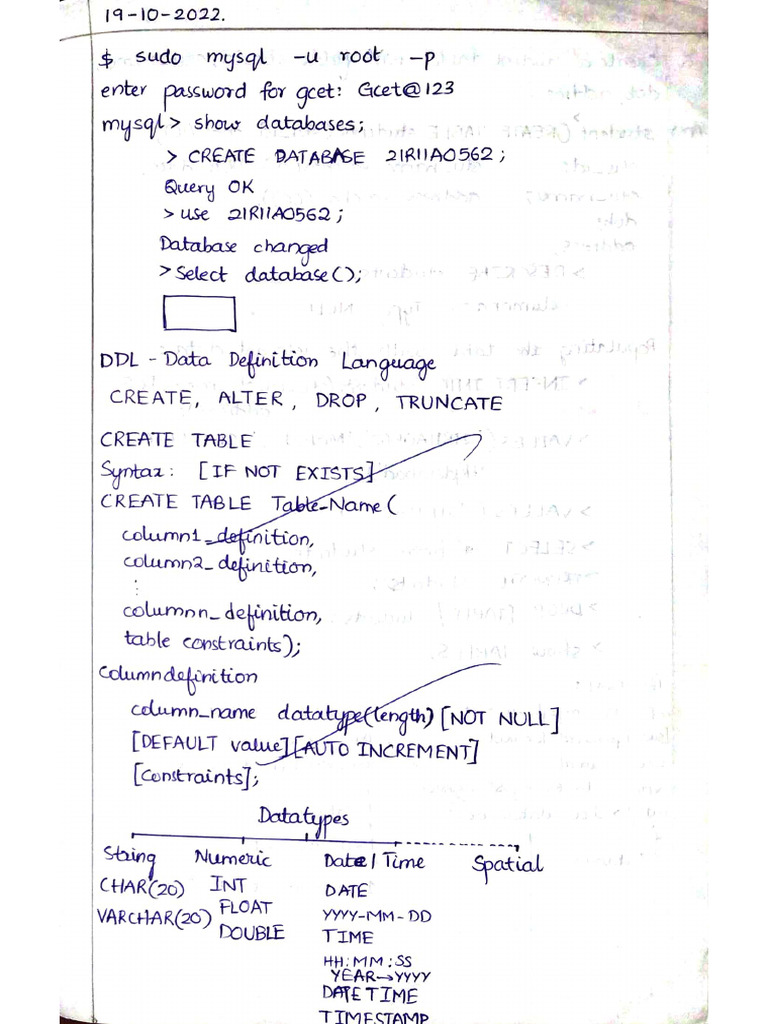 19-10-2022.
$ sudo mysql -u root -p
enter password for gcet: Gcet@123
mysql> show databases;
> CREATE DATABASE 21R11A0562;
Query OK
> use 21R11A0562;
Database changed
> Select database();
DDL - Data Definition Language
CREATE, ALTER, DROP, TRUNCATE
CREATE TABLE
Syntax: [IF NOT EXISTS]
CREATE TABLE Table-Name(
column1_definition,
column2_definition,
⋮
columnn_definition,
table constraints);
Column definition
column_name datatype(length) [NOT NULL]
[DEFAULT value][AUTO INCREMENT]
[Constraints];
Datatypes
String Numeric Date/Time Spatial
CHAR(20) INT DATE
VARCHAR(20) FLOAT YYYY-MM-DD
DOUBLE TIME
HH:MM:SS
YEAR→YYYY
DATETIME
TIMESTAMP